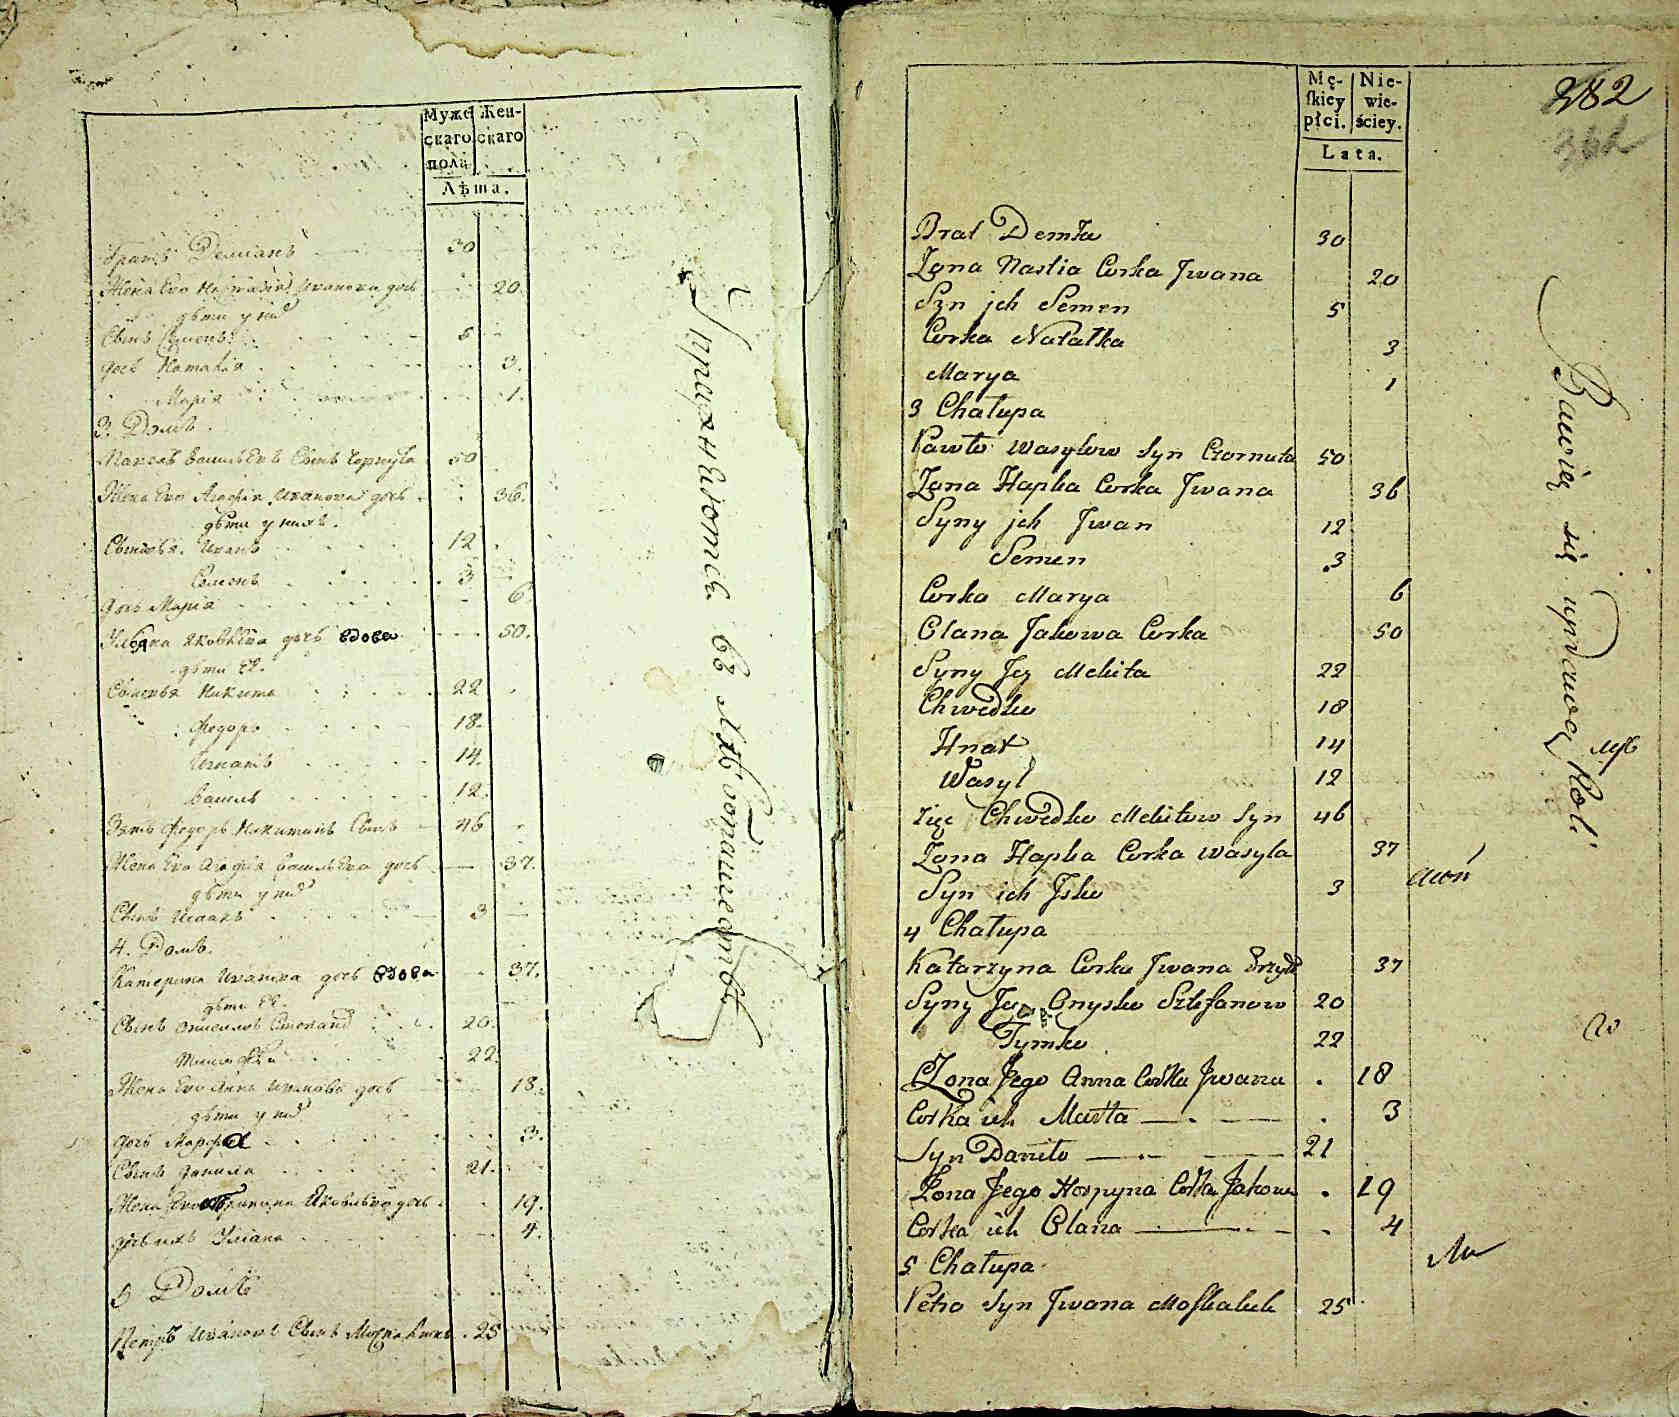 Муже Жен-
скаго скаго
пола
Лѣта.
братъ Демианъ 30
Жена Его Настасія Иванова дочь 20
дѣти у них
Сынъ Семенъ 5
дочь Наталія 3.
Марія 1.
3. Домъ.
Павелъ Васильевъ Сынъ Чернута 50
Жена Его Агафія Иванова дочь 36.
дѣти у нихъ.
Сыновья. Иванъ 12
Семенъ 3
дочь Марія 6.
Ульяна Яковлева дочь вдова 50.
дѣти Её.
Сыновья Никита 22
Федоръ 18.
Игнатъ 14.
Василь 12.
Зять Федоръ Никитинъ Сынъ 46
Жена Его Агафія Васильева дочь 37.
дѣти у них
Сынъ Исаакъ 3
4. Домъ.
Катерина Иванова дочь вдова 37.
дѣти Её.
Сынъ Онисимъ Степанов 20.
Тимофей 22.
Жена Его Анна Иванова дочь 18.
дѣти у них
дочь Марфа 3.
Сынъ Данила 21.
Жена Его Яковлева дочь 19.
дочь ихъ Уліана 4.
5 Домъ
Петръ Ивановъ Сынъ Москалюкъ 25
Упражняются въ Хлѣбопашествѣ
Mę- Nie-
skiey wie-
płci. ściey.
Lata.
282
Brat Demko 30
Zona Nastia Corka Jwana 20
Syn jch Semen 5
Corka Natałka 3
Marya 1
3 Chałupa
Pawło Wasylow Syn Czornuta 50
Zona Hapka Corka Jwana 36
Syny jch Jwan 12
Semen 3
Corka Marya 6
Olana Jakowa Corka 50
Syny Jey Mekita 22
Chwedko 18
Hnat 14
Wasyl 12
Zięć Chwedko Mekitow Syn 46
Zona Hapka Corka Wasyla 37
Syn ich Jsko 3
4 Chałupa
Katarzyna Corka Jwana 37
Syny Jey Onysko Sztefanow 20
Tymko 22
Zona Jego Anna Corka Jwana 18
Corka ich Marta 3
Syn Daniło 21
Zona Jego Hospyna Corka Jakowa 19
Corka ich Olana 4
5 Chałupa
Petro Syn Jwana Moskaluk 25
Bawią się uprawą Roli